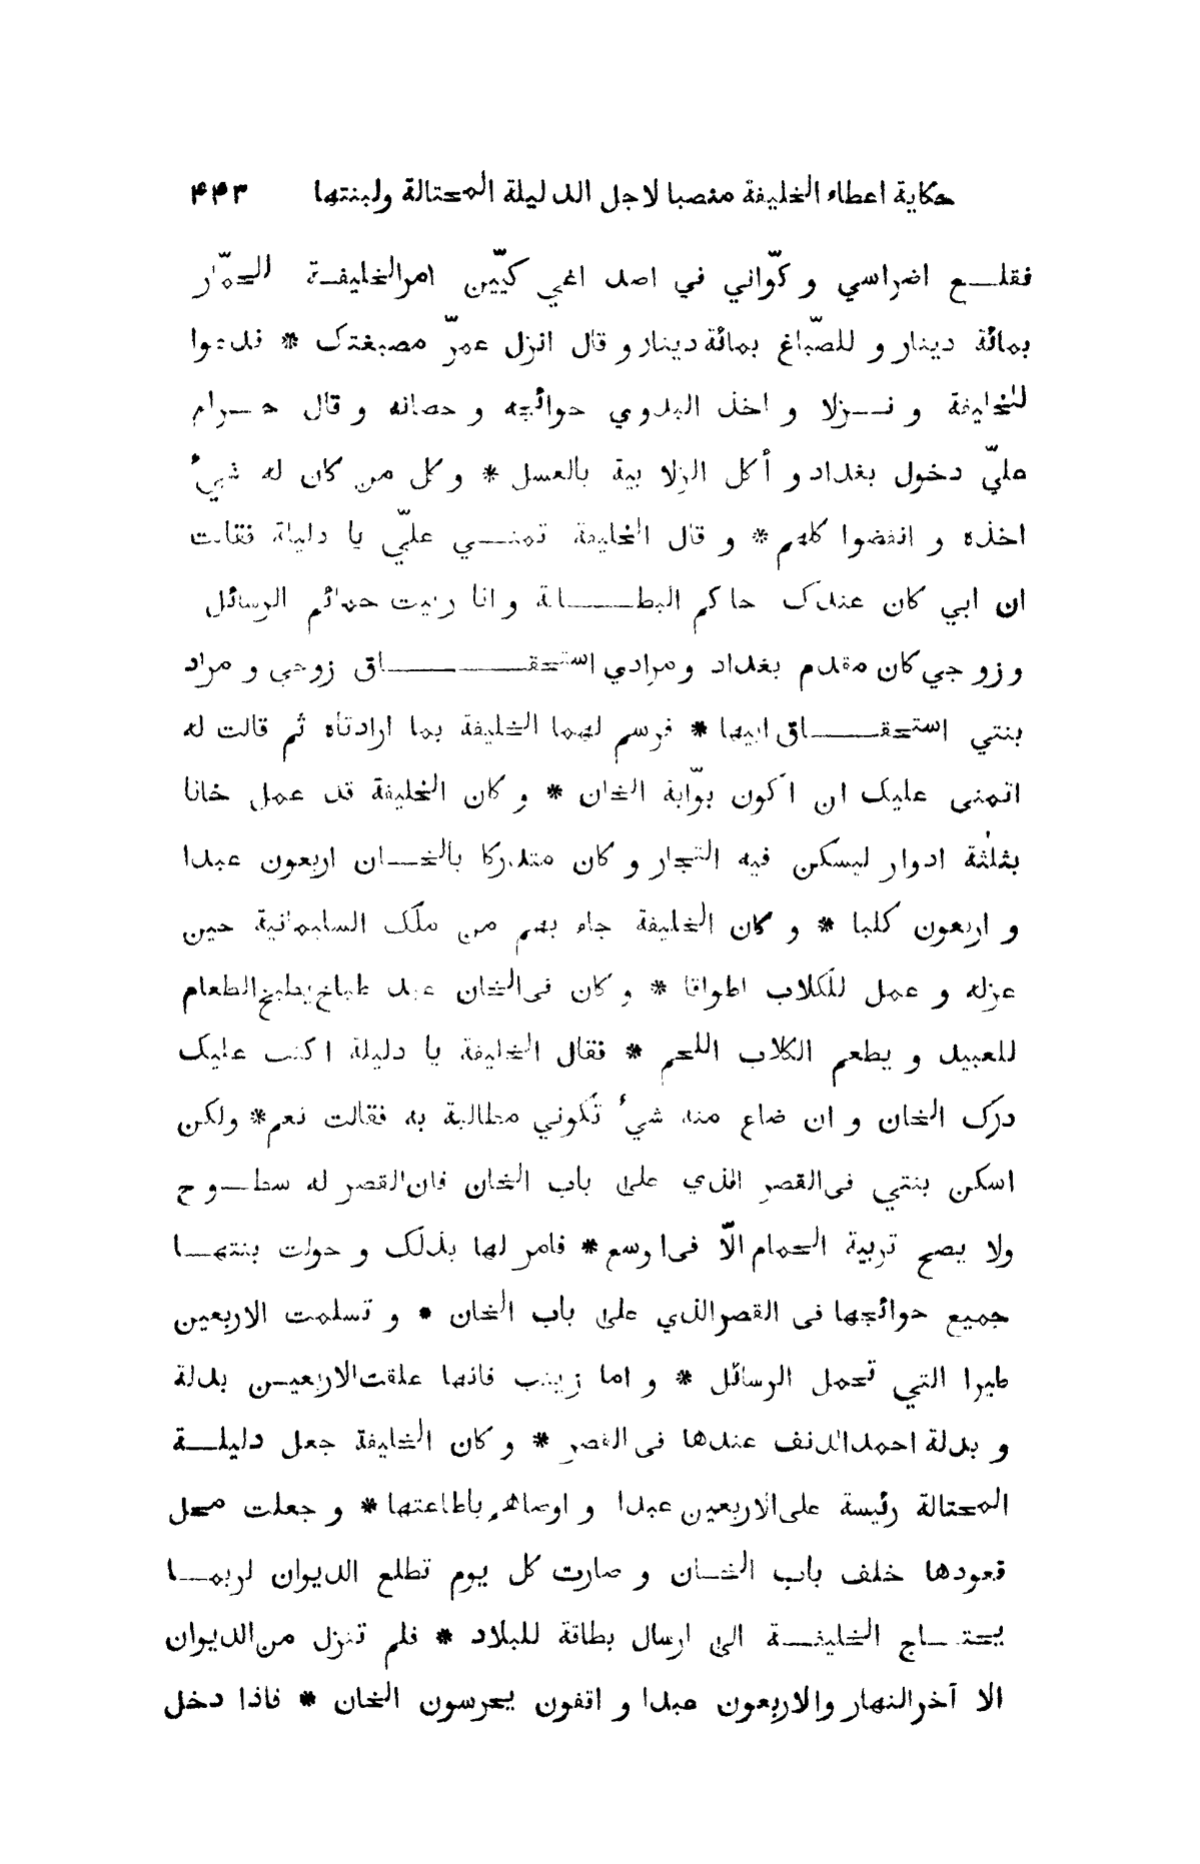 حكاية اعطاء الخليفة منصبا لاجل الدليلة المحتالة ولبنتها ۴۴۳
فقلـــع اضراسي و كوّاني في اصداغي كيّين امر الخليفـة للحمّار
بمائة دينار و للصبّاغ بمائة دينار و قال انزل عمّر مصبغتك * فدعوا
للخليفة و نـــزلا و اخذ البدوي حوائجه و حصانه و قال حـرام
عليّ دخول بغداد و أكل الزلابية بالعسل * و كل من كان له شيءٌ
اخذه و انفضوا كلهم * و قال الخليفة تمنـــي عليّ يا دليلة فقالت
ان ابي كان عندك حاكم البطـــاقة و انا ربيت حمائم الرسائل
و زوجي كان مقدم بغداد و مرادي استحقـــاق زوجي و مراد
بنتي استحقـــاق ابيها * فرسم لهما الخليفة بما ارادتاه ثم قالت له
اتمنى عليك ان اكون بوّابة الخان * و كان الخليفة قد عمل خانا
بثلثة ادوار ليسكن فيه التجار و كان متدركا بالخـــان اربعون عبدا
و اربعون كلبا * و كان الخليفة جاء بهم من ملك السليمانية حين
عزله و عمل للكلاب اطواقا * و كان فى الخان عبد طباخ يطبخ الطعام
للعبيد و يطعم الكلاب اللحم * فقال الخليفة يا دليلة اكتب عليك
درك الخان و ان ضاع منه شيءٌ تكوني مطالبة به فقالت نعم * ولكن
اسكن بنتي فى القصر الذي على باب الخان فان القصر له سطـــوح
ولا يصح تربية الحمام الّا فى اوسع * فامر لها بذلك و حولت بنتهـــا
جميع حوائجها فى القصر الذي على باب الخان * و تسلمت الاربعين
طيرا التي تحمل الرسائل * و اما زينب فانها علقت الاربعيـن بدلة
و بدلة احمد الدنف عندها فى القصر * و كان الخليفة جعل دليلـــة
المحتالة رئيسة على الاربعين عبدا و اوصاهم باطاعتها * و جعلت محل
قعودها خلف باب الخـــان و صارت كل يوم تطلع الديوان لربمـــا
يحتـــاج الخليفـــة الى ارسال بطاقة للبلاد * فلم تنزل من الديوان
الا آخر النهار والاربعون عبدا و اتفون يحرسون الخان * فاذا دخل